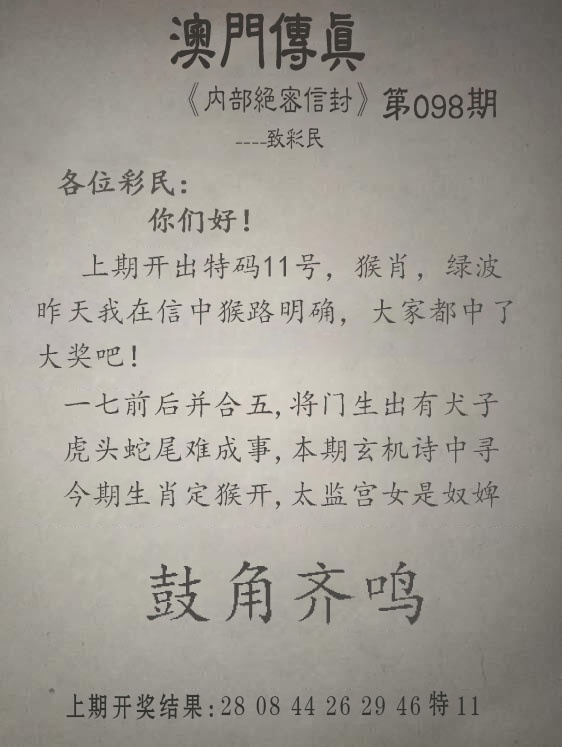 澳門傳眞
《内部絕密信封》第098期
----致彩民
各位彩民：
你们好！
上期开出特码11号，猴肖，绿波
昨天我在信中猴路明确，大家都中了
大奖吧！
一七前后并合五,将门生出有犬子
虎头蛇尾难成事,本期玄机诗中寻
今期生肖定猴开,太监宫女是奴婢
鼓角齐鸣
上期开奖结果:28 08 44 26 29 46 特 11